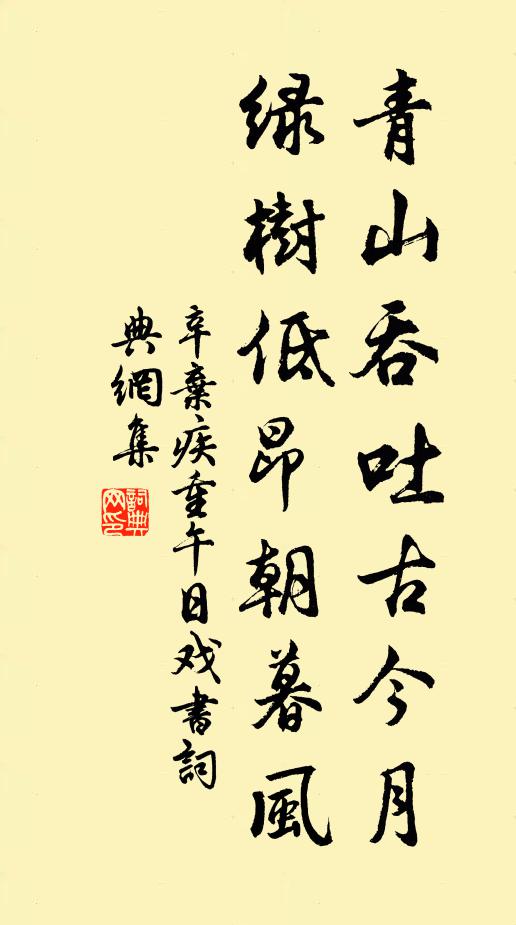 青山吞吐古今月
綠樹低昂朝暮風
辛棄疾重午日戏書詞
典網集
詞典網印